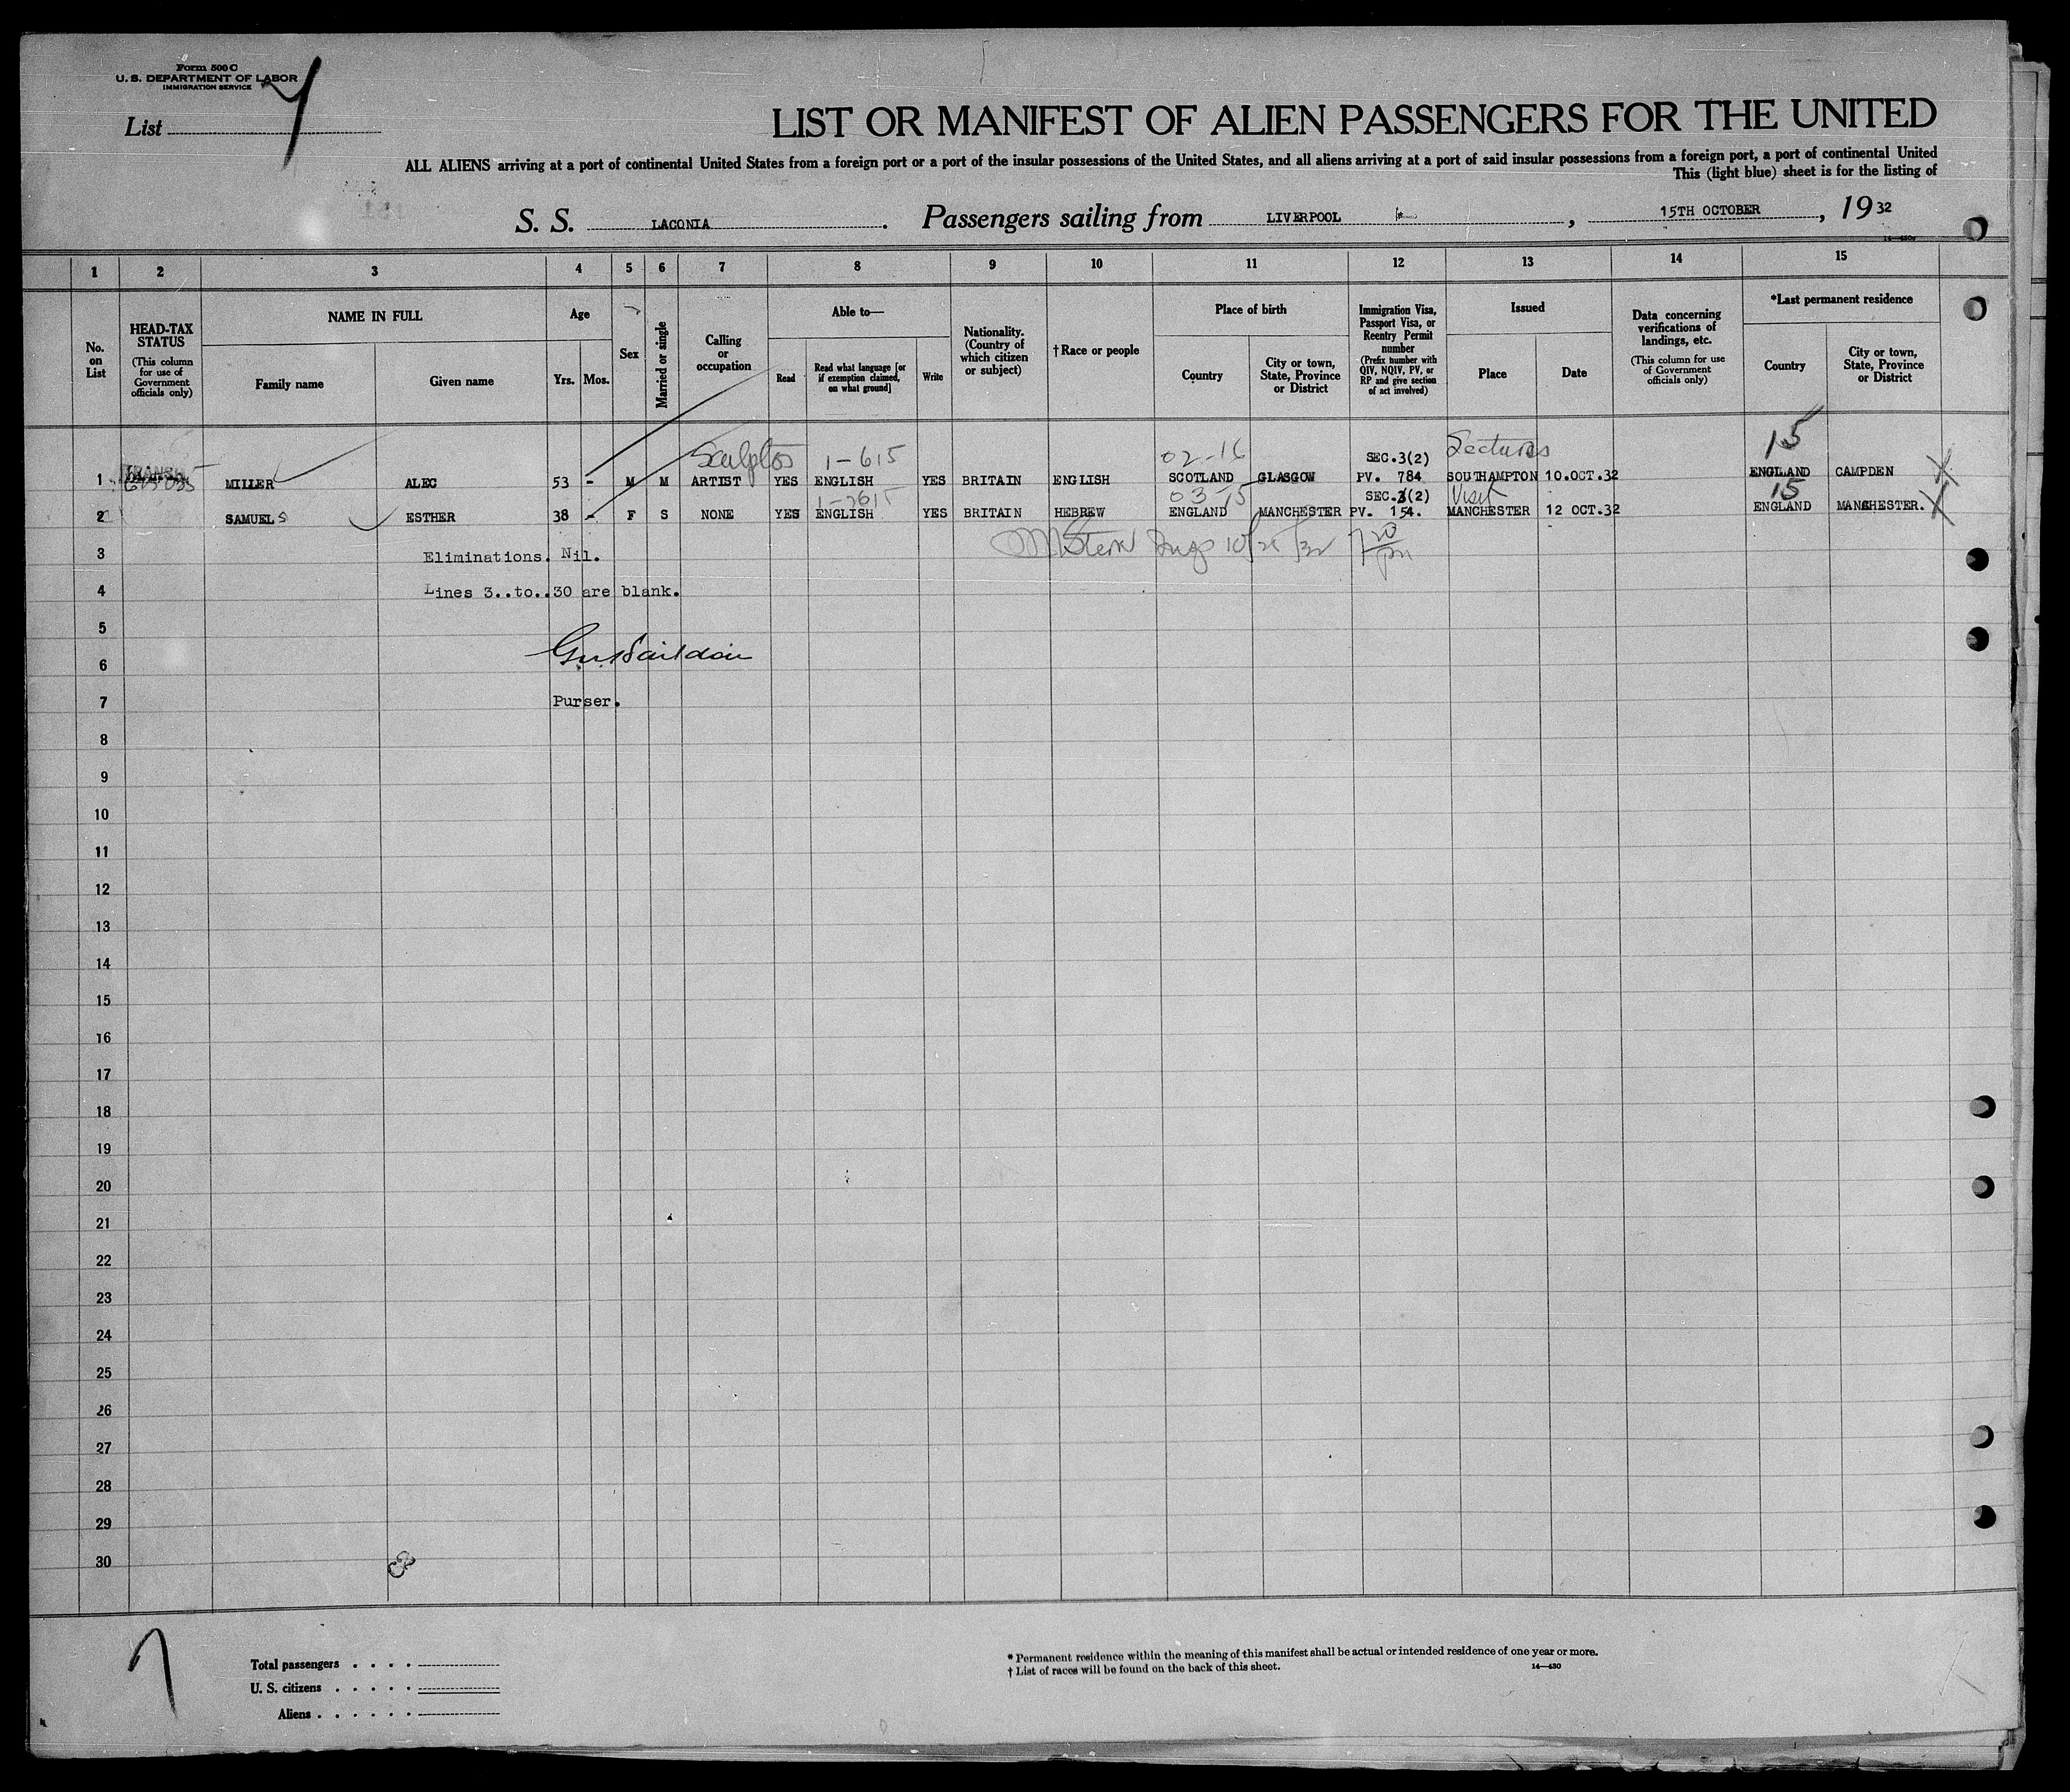 Form 500 C
U. S. DEPARTMENT OF LABOR
IMMIGRATION SERVICE
List
LIST OR MANIFEST OF ALIEN PASSENGERS FOR THE UNITED
ALL ALIENS arriving at a port of continental United States from a foreign port or a port of the insular possessions of the United States, and all aliens arriving at a port of said insular possessions from a foreign port, a port of continental United
This (light blue) sheet is for the listing of
S. S. LACONIA. Passengers sailing from LIVERPOOL, 15TH OCTOBER, 19 32
1 2 3 4 5 6 7 8 9 10 11 12 13 14 15
No. on List
HEAD-TAX STATUS
(This column for use of Government officials only)
NAME IN FULL
Family name
Given name
Age
Yrs. Mos.
Sex
Married or single
Calling or occupation
Able to—
Read
Read what language [or if exemption claimed, on what ground]
Write
Nationality. (Country of which citizen or subject)
†Race or people
Place of birth
Country
City or town, State, Province or District
Immigration Visa, Passport Visa, or Reentry Permit number
(Prefix number with QIV, NQIV, PV, or RP and give section of act involved)
Issued
Place
Date
Data concerning verifications of landings, etc.
(This column for use of Government officials only)
*Last permanent residence
Country
City or town, State, Province or District
Sculptor 1-615 02-16 SEC.3(2) Lectures 15
1 MILLER ALEC 53 - M M ARTIST YES ENGLISH YES BRITAIN ENGLISH SCOTLAND GLASGOW PV. 784 SOUTHAMPTON 10.OCT.32 ENGLAND CAMPDEN X
1-2615 03-15 SEC.3(2) Visit 15
2 SAMUELS ESTHER 38 - F S NONE YES ENGLISH YES BRITAIN HEBREW ENGLAND MANCHESTER PV. 154. MANCHESTER 12 OCT.32 ENGLAND MANCHESTER. X
3 Eliminations. Nil.
4 Lines 3..to..30 are blank.
5
6
7 Purser.
8
9
10
11
12
13
14
15
16
17
18
19
20
21
22
23
24
25
26
27
28
29
30
Total passengers . . . .
U. S. citizens . . . . .
Aliens . . . . . .
* Permanent residence within the meaning of this manifest shall be actual or intended residence of one year or more.
† List of races will be found on the back of this sheet.
14—430